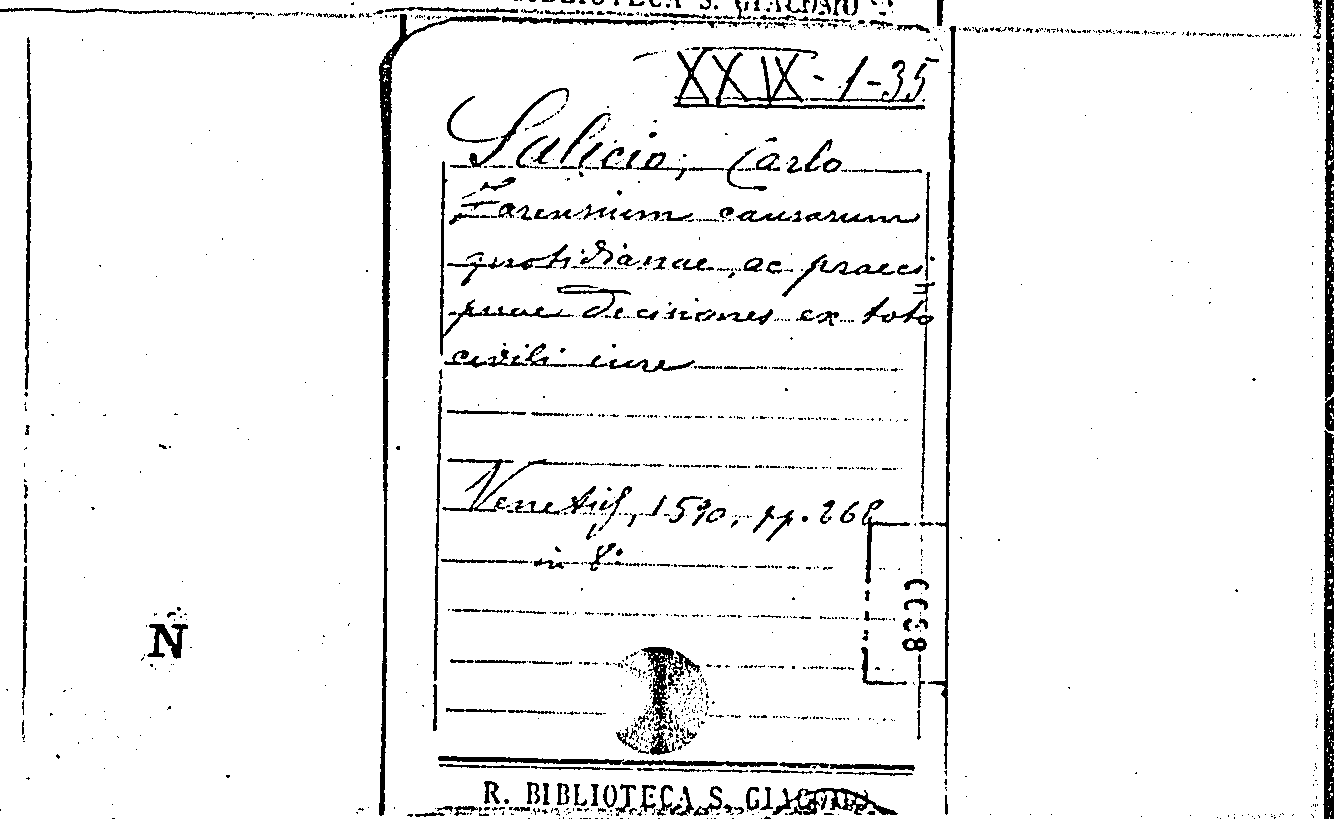 BIBLIOTECA S. GIACOMO
XXIX-1-35
Salicio, Carlo
Forensium causarum
quotidianae, ac praeci=
puae Decisiones ex toto
civili iure
Venetijs, 1590, pp. 268
in 8°
0038
N
R. BIBLIOTECA S. GIACOMO